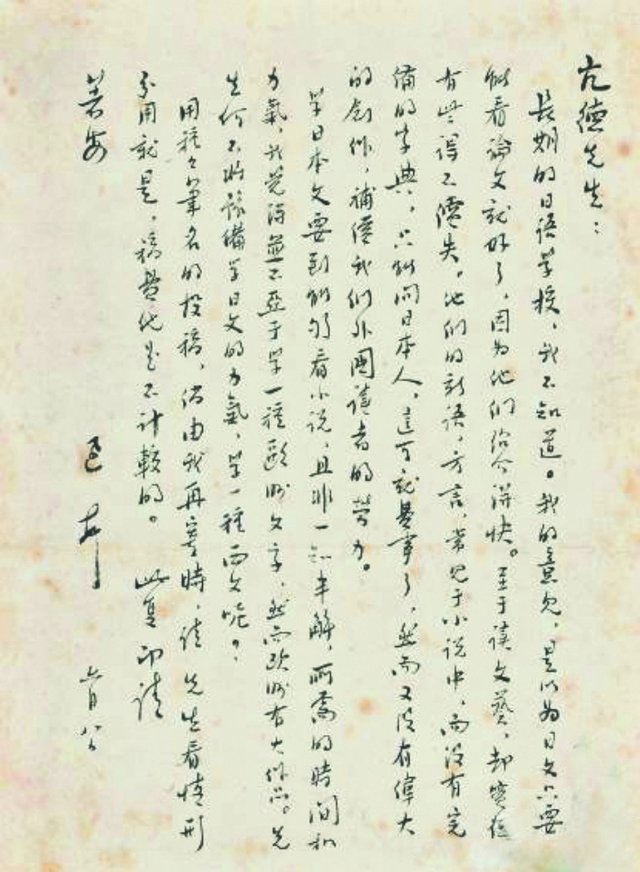 亢德先生：
长期的日语学校，我不知道。我的意见，是以为日文只要
能看论文就好了，因为他们绍介得快。至于读文艺，却实在
有些得不偿失。他们的新语，方言，常见于小说中，而没有完
备的字典，只能问日本人，这可就费事了，然而又没有伟大
的创作，补偿我们外国读者的劳力。
学日本文要到能够看小说，且非一知半解，所需的时间和
力气，我觉得并不亚于学一种欧洲文字，然而欧洲有大作品。先
生何不将豫备学日文的力气，学一种西文呢？
用种种笔名的投稿，倘由我再寄时，请 先生看情形
分用就是，稿费他是不计较的。 此复即请
著安
迅 上 六月八日